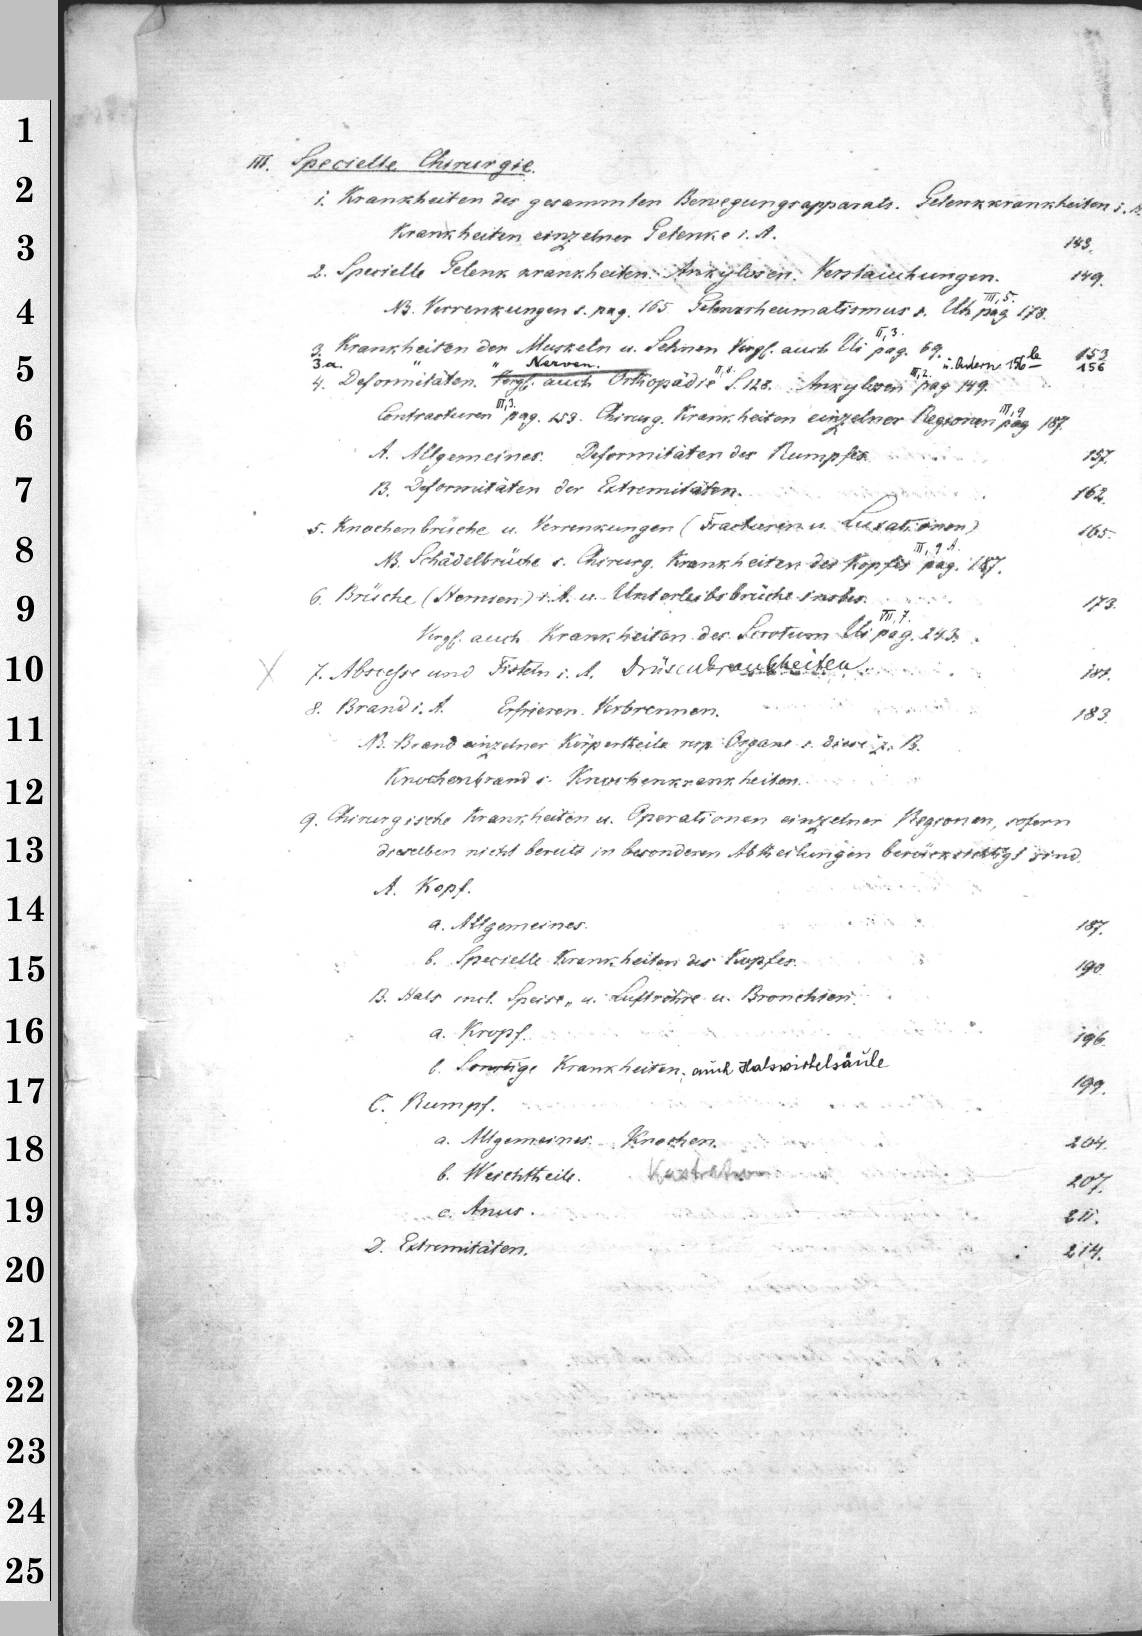 III. Specielle Chirurgie.
1. Krankheiten des gesammten Bewegungsapparats. Gelenkkrankheiten i. A.
Krankheiten einzelner Gelenke i. A. 143.
2. Specielle Gelenkkrankheiten. Ankylosen. Verstauchungen. 149.
NB. Verrenkungen s. pag. 165 Gelenkrheumatismus s. Uh III, 5. pag 178.
3. Krankheiten der Muskeln u. Sehnen Vergl. auch Ui II, 3. pag. 69. 153
3.a. " " Nerven. u. Adern 156 b 156
4. Deformitäten. Vergl. auch Orthopädie II, 8. S. 128. Ankylosen III, 2. pag 149.
Contracturen III, 3. pag. 153. Chirurg. Krankheiten einzelner Regionen III, 9 pag 187.
A. Allgemeines. Deformitäten des Rumpfes 157.
B. Deformitäten der Extremitäten. 162.
5. Knochenbrüche u. Verrenkungen (Fracturen u. Luxationen) 165.
NB. Schädelbrüche s. Chirurg. Krankheiten des Kopfes III, 9 A. pag. 187.
6. Brüche (Hernien) i. A. u. Unterleibsbrüche insbes. 173.
Vergl. auch Krankheiten des Scrotum Ui III, 7. pag. 243.
X 7. Abscesse und Fisteln i. A. Drüsenkrankheiten. 181.
8. Brand i. A. Erfrieren. Verbrennen. 183.
NB. Brand einzelner Körpertheile resp. Organe s. diese z. B.
Knochenbrand s. Knochenkrankheiten.
9. Chirurgische Krankheiten u. Operationen einzelner Regionen, sofern
dieselben nicht bereits in besonderen Abtheilungen berücksichtigt sind.
A. Kopf.
a. Allgemeines. 187.
b. Specielle Krankheiten des Kopfes. 190
B. Hals incl. Speise- u. Luftröhre u. Bronchien.
a. Kropf. 196.
b. Sonstige Krankheiten, auch Halswirbelsäule 199.
C. Rumpf.
a. Allgemeines. Knochen. 204.
b. Weichtheile. Kastration 207.
c. Anus. 211.
D. Extremitäten. 214.
1
2
3
4
5
6
7
8
9
10
11
12
13
14
15
16
17
18
19
20
21
22
23
24
25